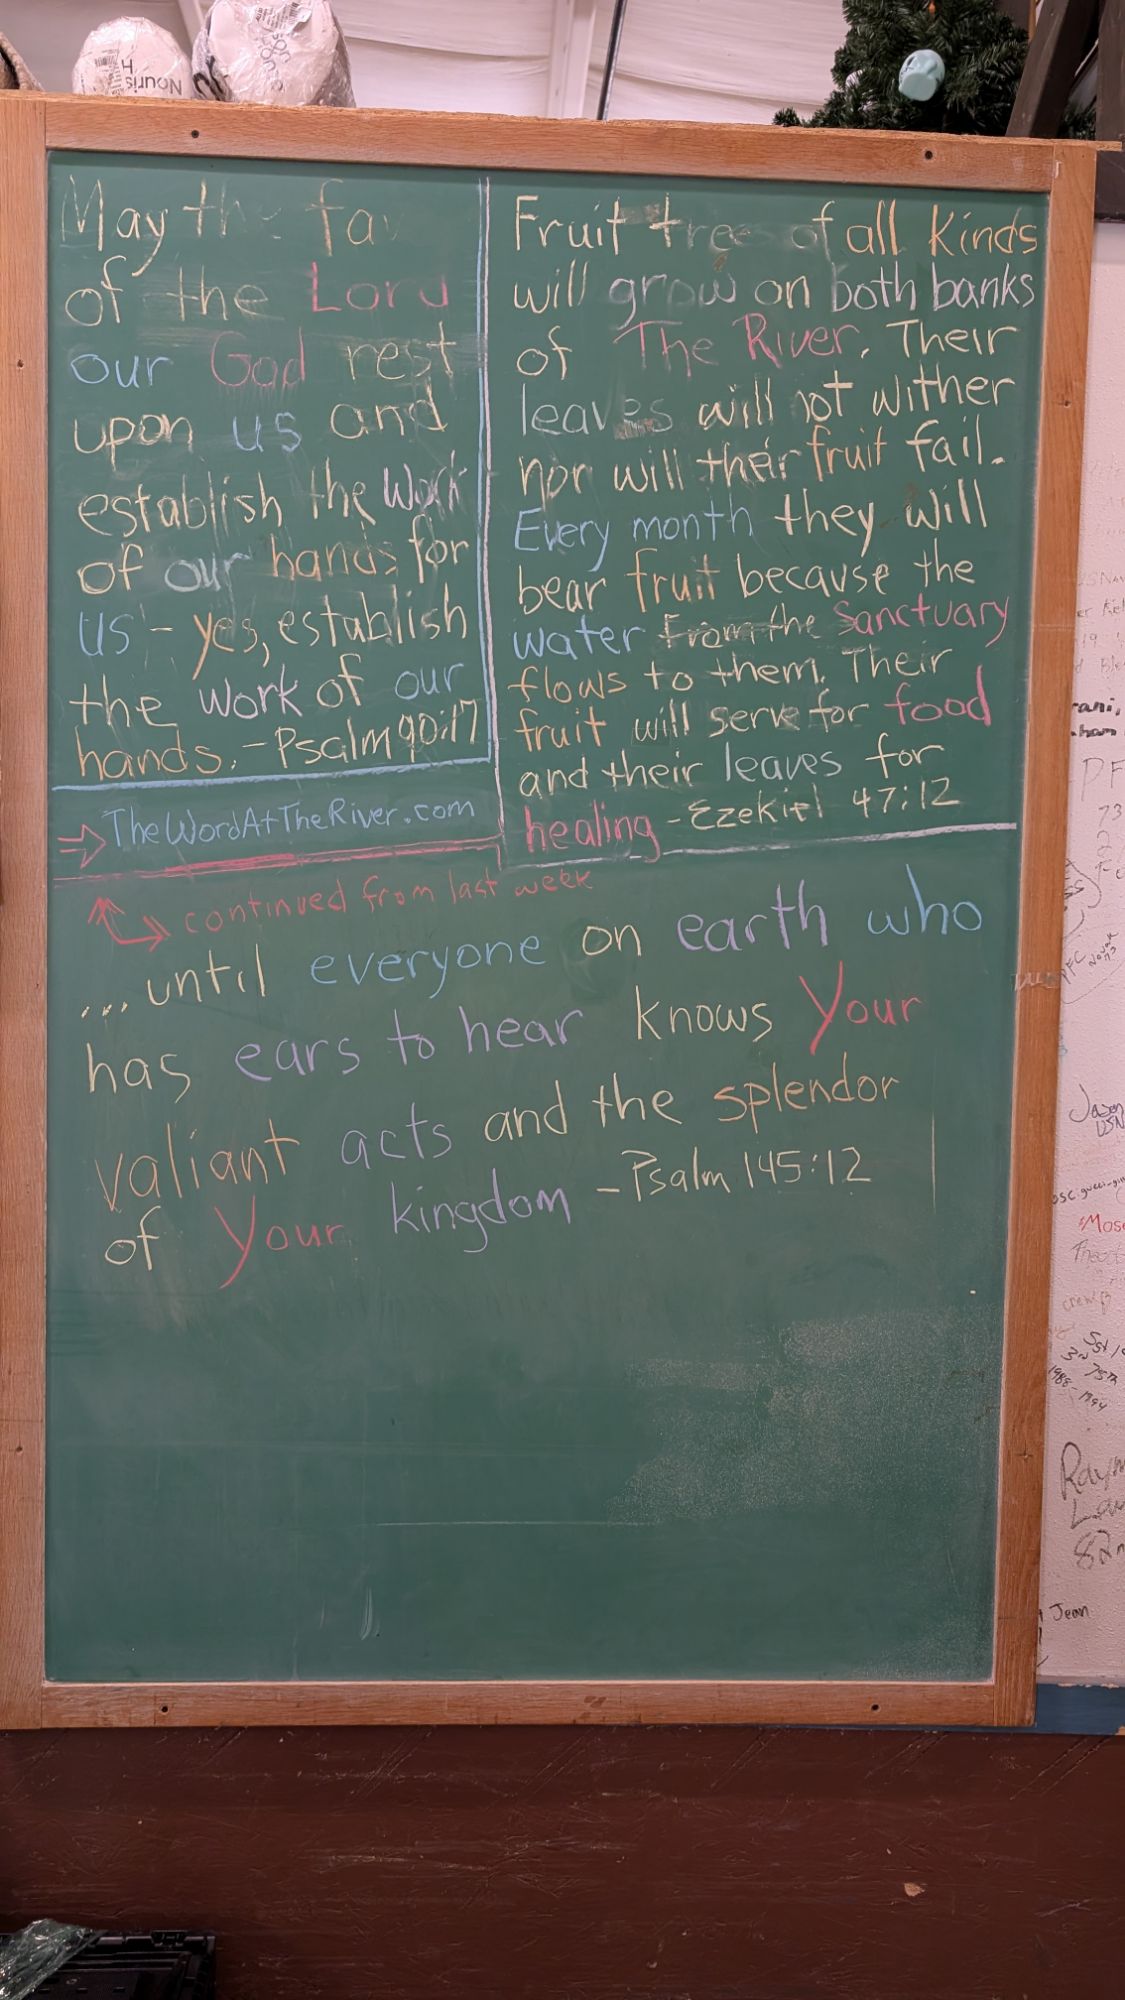 May the fa
of the Lord
our God rest
upon us and
establish the work
of our hands for
us - yes, establish
the work of our
hands. - Psalm 90:17
TheWordAtTheRiver.com
Fruit trees of all Kinds
will grow on both banks
of The River. Their
leaves will not wither
nor will their fruit fail.
Every month they will
bear fruit because the
water from the Sanctuary
flows to them. Their
fruit will serve for food
and their leaves for
healing - Ezekiel 47:12
continued from last week
...until everyone on earth who
has ears to hear knows Your
valiant acts and the splendor
of Your kingdom - Psalm 145:12
Nouris
H
Jason
USN
Jean